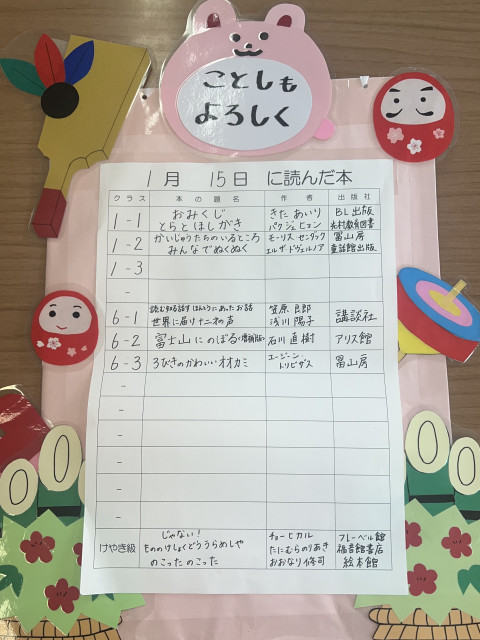 ことしも
よろしく
1月 15日 に読んだ本
クラス 本の題名 作者 出版社
1-1 おみくじ きたあいり BL出版
とらとほしがき パクジェヒョン 光村教育図書
1-2 かいじゅうたちのいるところ モーリス・センダック 冨山房
みんなでぬくぬく エルザ・ドヴェルノア 童話館出版
1-3
-
6-1 読む知る話す ほんとうにあったお話 笠原良郎 講談社
世界に届け十二才の声 浅川陽子
6-2 富士山にのぼる(増補版) 石川直樹 アリス館
6-3 3びきのかわいいオオカミ ユージーン・トリビザス 冨山房
-
-
-
-
-
-
けやき級 じゃない! チョーヒカル フレーベル館
もののけしょくどううらめしや たにむらのりあき 福音館書店
のこったのこった おおなり修司 絵本館